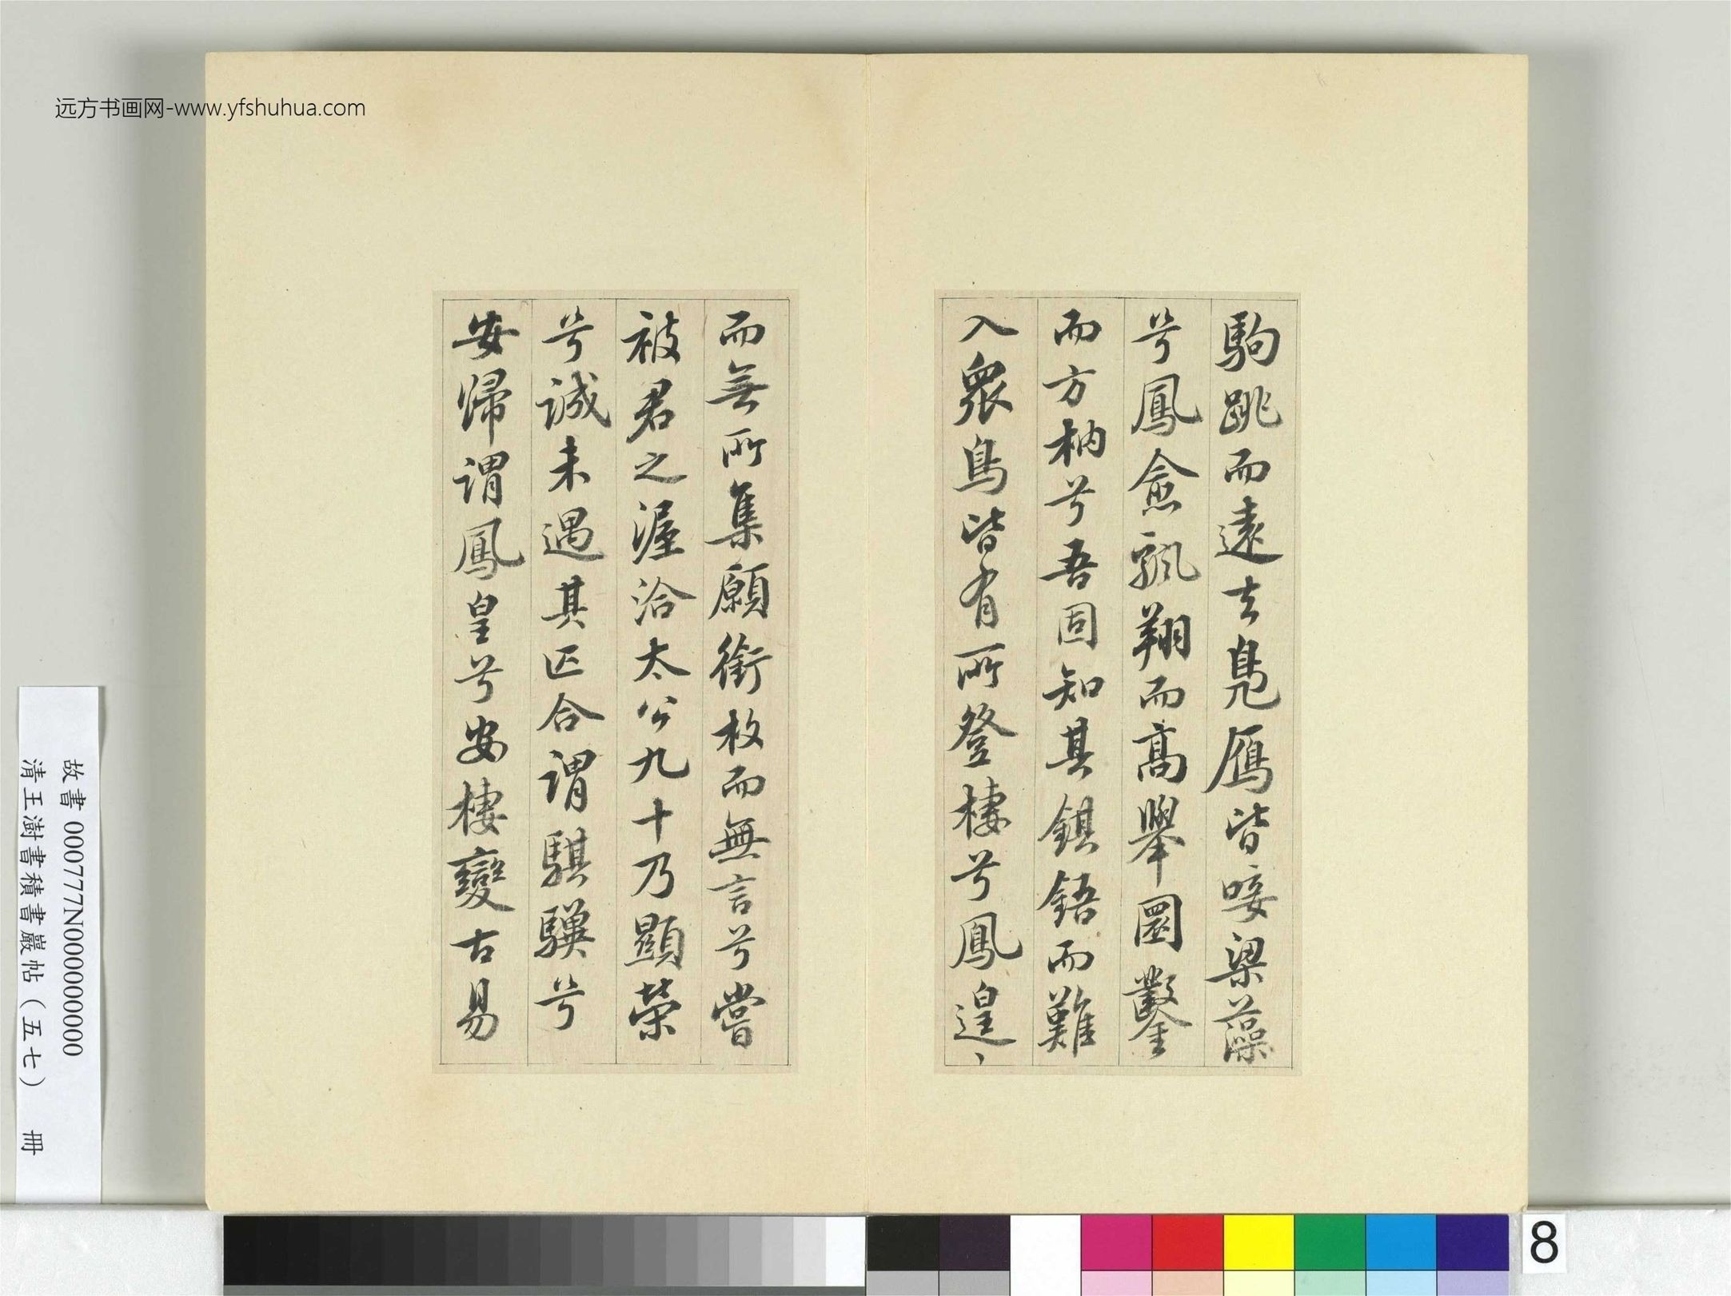 远方书画网-www.yfshuhua.com
駒跳而遠去鳧鴈皆唼梁藻
兮鳳愈飄翔而高舉圜鑿
而方枘兮吾固知其鉏鋙而難
入眾鳥皆有所登棲兮鳳遑、
而無所集願銜枚而無言兮嘗
被君之渥洽太公九十乃顯榮
兮誠未遇其匹合謂騏驥兮
安歸謂鳳皇兮安棲變古易
故書 000777N000000000
清王澍書積書巖帖（五七） 冊
8